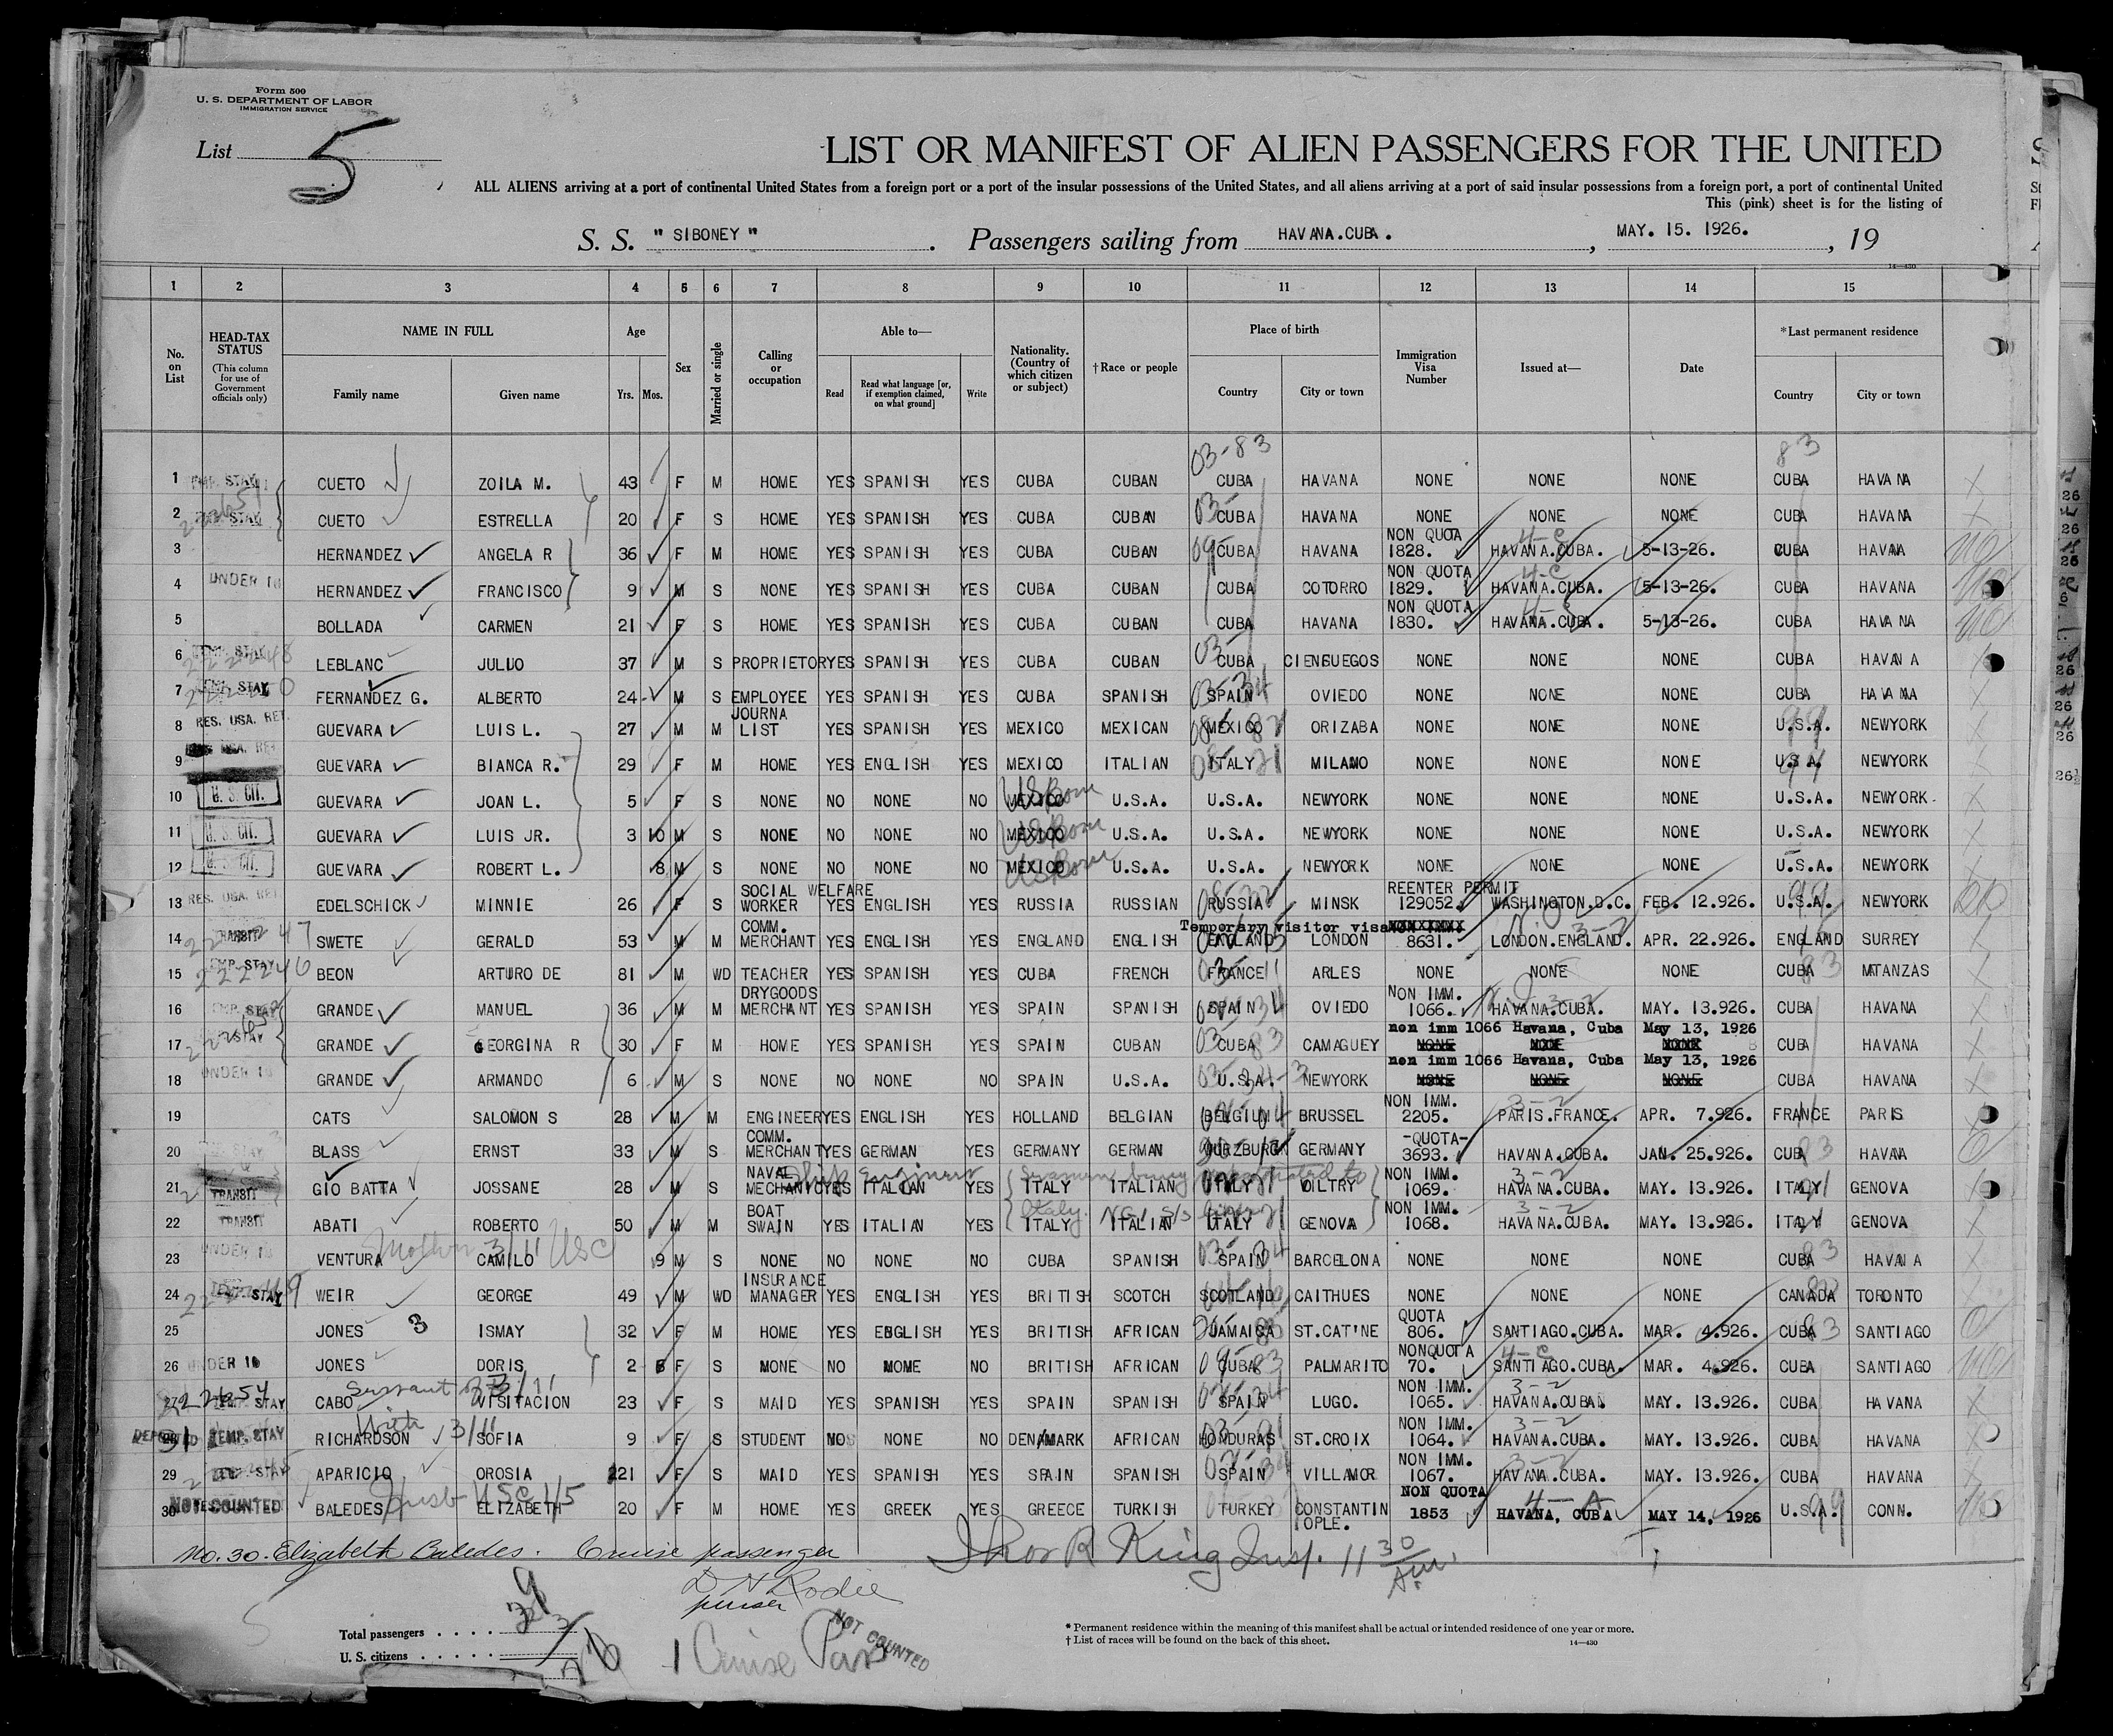 Form 500
U. S. DEPARTMENT OF LABOR
IMMIGRATION SERVICE
List 5
LIST OR MANIFEST OF ALIEN PASSENGERS FOR THE UNITED
ALL ALIENS arriving at a port of continental United States from a foreign port or a port of the insular possessions of the United States, and all aliens arriving at a port of said insular possessions from a foreign port, a port of continental United
This (pink) sheet is for the listing of
S. S. " SIBONEY " . Passengers sailing from HAVANA.CUBA. , MAY. 15. 1926. , 19
14—430
1 2 3 4 5 6 7 8 9 10 11 12 13 14 15
No. on List
HEAD-TAX STATUS
(This column for use of Government officials only)
NAME IN FULL
Family name
Given name
Age
Yrs. Mos.
Sex
Married or single
Calling or occupation
Able to—
Read
Read what language [or, if exemption claimed, on what ground]
Write
Nationality. (Country of which citizen or subject)
†Race or people
Place of birth
Country
City or town
Immigration Visa Number
Issued at—
Date
*Last permanent residence
Country
City or town
03-83 83
1 TEMP. STAY CUETO ZOILA M. 43 F M HOME YES SPANISH YES CUBA CUBAN CUBA HAVANA NONE NONE NONE CUBA HAVANA
2 STAY CUETO ESTRELLA 20 F S HOME YES SPANISH YES CUBA CUBAN 03- CUBA HAVANA NONE NONE NONE CUBA HAVANA
NON QUOTA 4-C
3 HERNANDEZ ANGELA R 36 F M HOME YES SPANISH YES CUBA CUBAN 09- CUBA HAVANA 1828. HAVANA.CUBA. 5-13-26. CUBA HAVANA
NON QUOTA 4-C
4 UNDER 16 HERNANDEZ FRANCISCO 9 M S NONE YES SPANISH YES CUBA CUBAN CUBA COTORRO 1829. HAVANA.CUBA. 5-13-26. CUBA HAVANA
NON QUOTA
5 BOLLADA CARMEN 21 F S HOME YES SPANISH YES CUBA CUBAN CUBA HAVANA 1830. HAVANA.CUBA. 5-13-26. CUBA HAVANA
6 TEMP. STAY LEBLANC JULIO 37 M S PROPRIETOR YES SPANISH YES CUBA CUBAN 03- CUBA CIENGUEGOS NONE NONE NONE CUBA HAVANA
7 STAY FERNANDEZ G. ALBERTO 24 M S EMPLOYEE YES SPANISH YES CUBA SPANISH SPAIN OVIEDO NONE NONE NONE CUBA HAVANA
JOURNA
8 RES. USA. RET. GUEVARA LUIS L. 27 M M LIST YES SPANISH YES MEXICO MEXICAN MEXICO ORIZABA NONE NONE NONE U.S.A. NEWYORK
9 USA. RET GUEVARA BIANCA R. 29 F M HOME YES ENGLISH YES MEXICO ITALIAN ITALY MILANO NONE NONE NONE U.S.A. NEWYORK
10 U. S. CIT. GUEVARA JOAN L. 5 F S NONE NO NONE NO MEXICO US Born U.S.A. U.S.A. NEWYORK NONE NONE NONE U.S.A. NEWYORK.
11 U. S. CIT. GUEVARA LUIS JR. 3 10 M S NONE NO NONE NO MEXICO US Born U.S.A. U.S.A. NEWYORK NONE NONE NONE U.S.A. NEWYORK
12 U. S. CIT. GUEVARA ROBERT L. 8 M S NONE NO NONE NO MEXICO US Born U.S.A. U.S.A. NEWYORK NONE NONE NONE U.S.A. NEWYORK
SOCIAL WELFARE REENTER PERMIT
13 RES. USA. RET EDELSCHICK MINNIE 26 F S WORKER YES ENGLISH YES RUSSIA RUSSIAN RUSSIA MINSK 129052. WASHINGTON.D.C. FEB. 12.926. U.S.A. NEWYORK
COMM. Temporary visitor visa
14 TRANSIT SWETE GERALD 53 M M MERCHANT YES ENGLISH YES ENGLAND ENGLISH ENGLAND LONDON 8631. LONDON.ENGLAND. 3-2 APR. 22.926. ENGLAND SURREY
15 TEMP. STAY 222246 BEON ARTURO DE 81 M WD TEACHER YES SPANISH YES CUBA FRENCH FRANCE ARLES NONE NONE NONE CUBA MATANZAS
DRYGOODS NON IMM.
16 TEMP. STAY GRANDE MANUEL 36 M M MERCHANT YES SPANISH YES SPAIN SPANISH SPAIN OVIEDO 1066. HAVANA.CUBA. 3-2 MAY. 13.926. CUBA HAVANA
non imm 1066 Havana, Cuba May 13, 1926
17 STAY GRANDE GEORGINA R 30 F M HOME YES SPANISH YES SPAIN CUBAN CUBA CAMAGUEY NONE NONE NONE CUBA HAVANA
non imm 1066 Havana, Cuba May 13, 1926
18 UNDER 16 GRANDE ARMANDO 6 M S NONE NO NONE NO SPAIN U.S.A. U.S.A. NEWYORK NONE NONE NONE CUBA HAVANA
NON IMM. 3-2
19 CATS SALOMON S 28 M M ENGINEER YES ENGLISH YES HOLLAND BELGIAN BELGIUM BRUSSEL 2205. PARIS.FRANCE. APR. 7.926. FRANCE PARIS
COMM. -QUOTA-
20 BLASS ERNST 33 M S MERCHANT YES GERMAN YES GERMANY GERMAN WURZBURG GERMANY 3693. HAVANA.CUBA. JAN. 25.926. CUBA HAVANA
NAVAL Ship Engineer Seaman being repatriated to NON IMM. 3-2
21 TRANSIT GIO BATTA JOSSANE 28 M S MECHANIC YES ITALIAN YES ITALY ITALIAN ITALY OILTRY 1069. HAVANA.CUBA. MAY. 13.926. ITALY GENOVA
BOAT Italy. NON IMM. 3-2
22 TRANSIT ABATI ROBERTO 50 M M SWAIN YES ITALIAN YES ITALY ITALIAN ITALY GENOVA 1068. HAVANA.CUBA. MAY. 13.926. ITALY GENOVA
Mother 3/11 USC
23 UNDER 16 VENTURA CAMILO 9 M S NONE NO NONE NO CUBA SPANISH SPAIN BARCELONA NONE NONE NONE CUBA HAVANA
INSURANCE
24 TEMP. STAY WEIR GEORGE 49 M WD MANAGER YES ENGLISH YES BRITISH SCOTCH SCOTLAND CAITHUES NONE NONE NONE CANADA TORONTO
QUOTA
25 JONES 3 ISMAY 32 F M HOME YES ENGLISH YES BRITISH AFRICAN JAMAICA ST.CAT'NE 806. SANTIAGO.CUBA. MAR. 4.926. CUBA SANTIAGO
NONQUOTA 4-C
26 UNDER 16 JONES DORIS 2 6 F S MONE NO MOME NO BRITISH AFRICAN CUBA PALMARITO 70. SANTIAGO.CUBA. MAR. 4.926. CUBA SANTIAGO
Servant of 3/11 NON IMM. 3-2
27 STAY CABO VISITACION 23 F S MAID YES SPANISH YES SPAIN SPANISH SPAIN LUGO. 1065. HAVANA.CUBA. MAY. 13.926. CUBA HAVANA
With 3/11 NON IMM. 3-2
DEPORTED TEMP. STAY RICHARDSON SOFIA 9 F S STUDENT NO NONE NO DENMARK AFRICAN HONDURAS ST.CROIX 1064. HAVANA.CUBA. MAY. 13.926. CUBA HAVANA
NON IMM. 3-2
29 STAY APARICIO OROSIA 21 F S MAID YES SPANISH YES SPAIN SPANISH SPAIN VILLAMOR 1067. HAVANA.CUBA. MAY. 13.926. CUBA HAVANA
Husb USC 1/5 NON QUOTA 4-A
30 NOT COUNTED BALEDES ELIZABETH 20 F M HOME YES GREEK YES GREECE TURKISH TURKEY CONSTANTIN 1853 HAVANA, CUBA MAY 14, 1926 U.S.A. 99 CONN.
IOPLE.
No. 30. Elizabeth Baledes. Cruise passenger
Thos R King Insp. 11 30 AM
D H Rodie
purser
Total passengers . . . .
U. S. citizens . . . . .
1 Cruise Pas
NOT COUNTED
* Permanent residence within the meaning of this manifest shall be actual or intended residence of one year or more.
† List of races will be found on the back of this sheet.
14—430